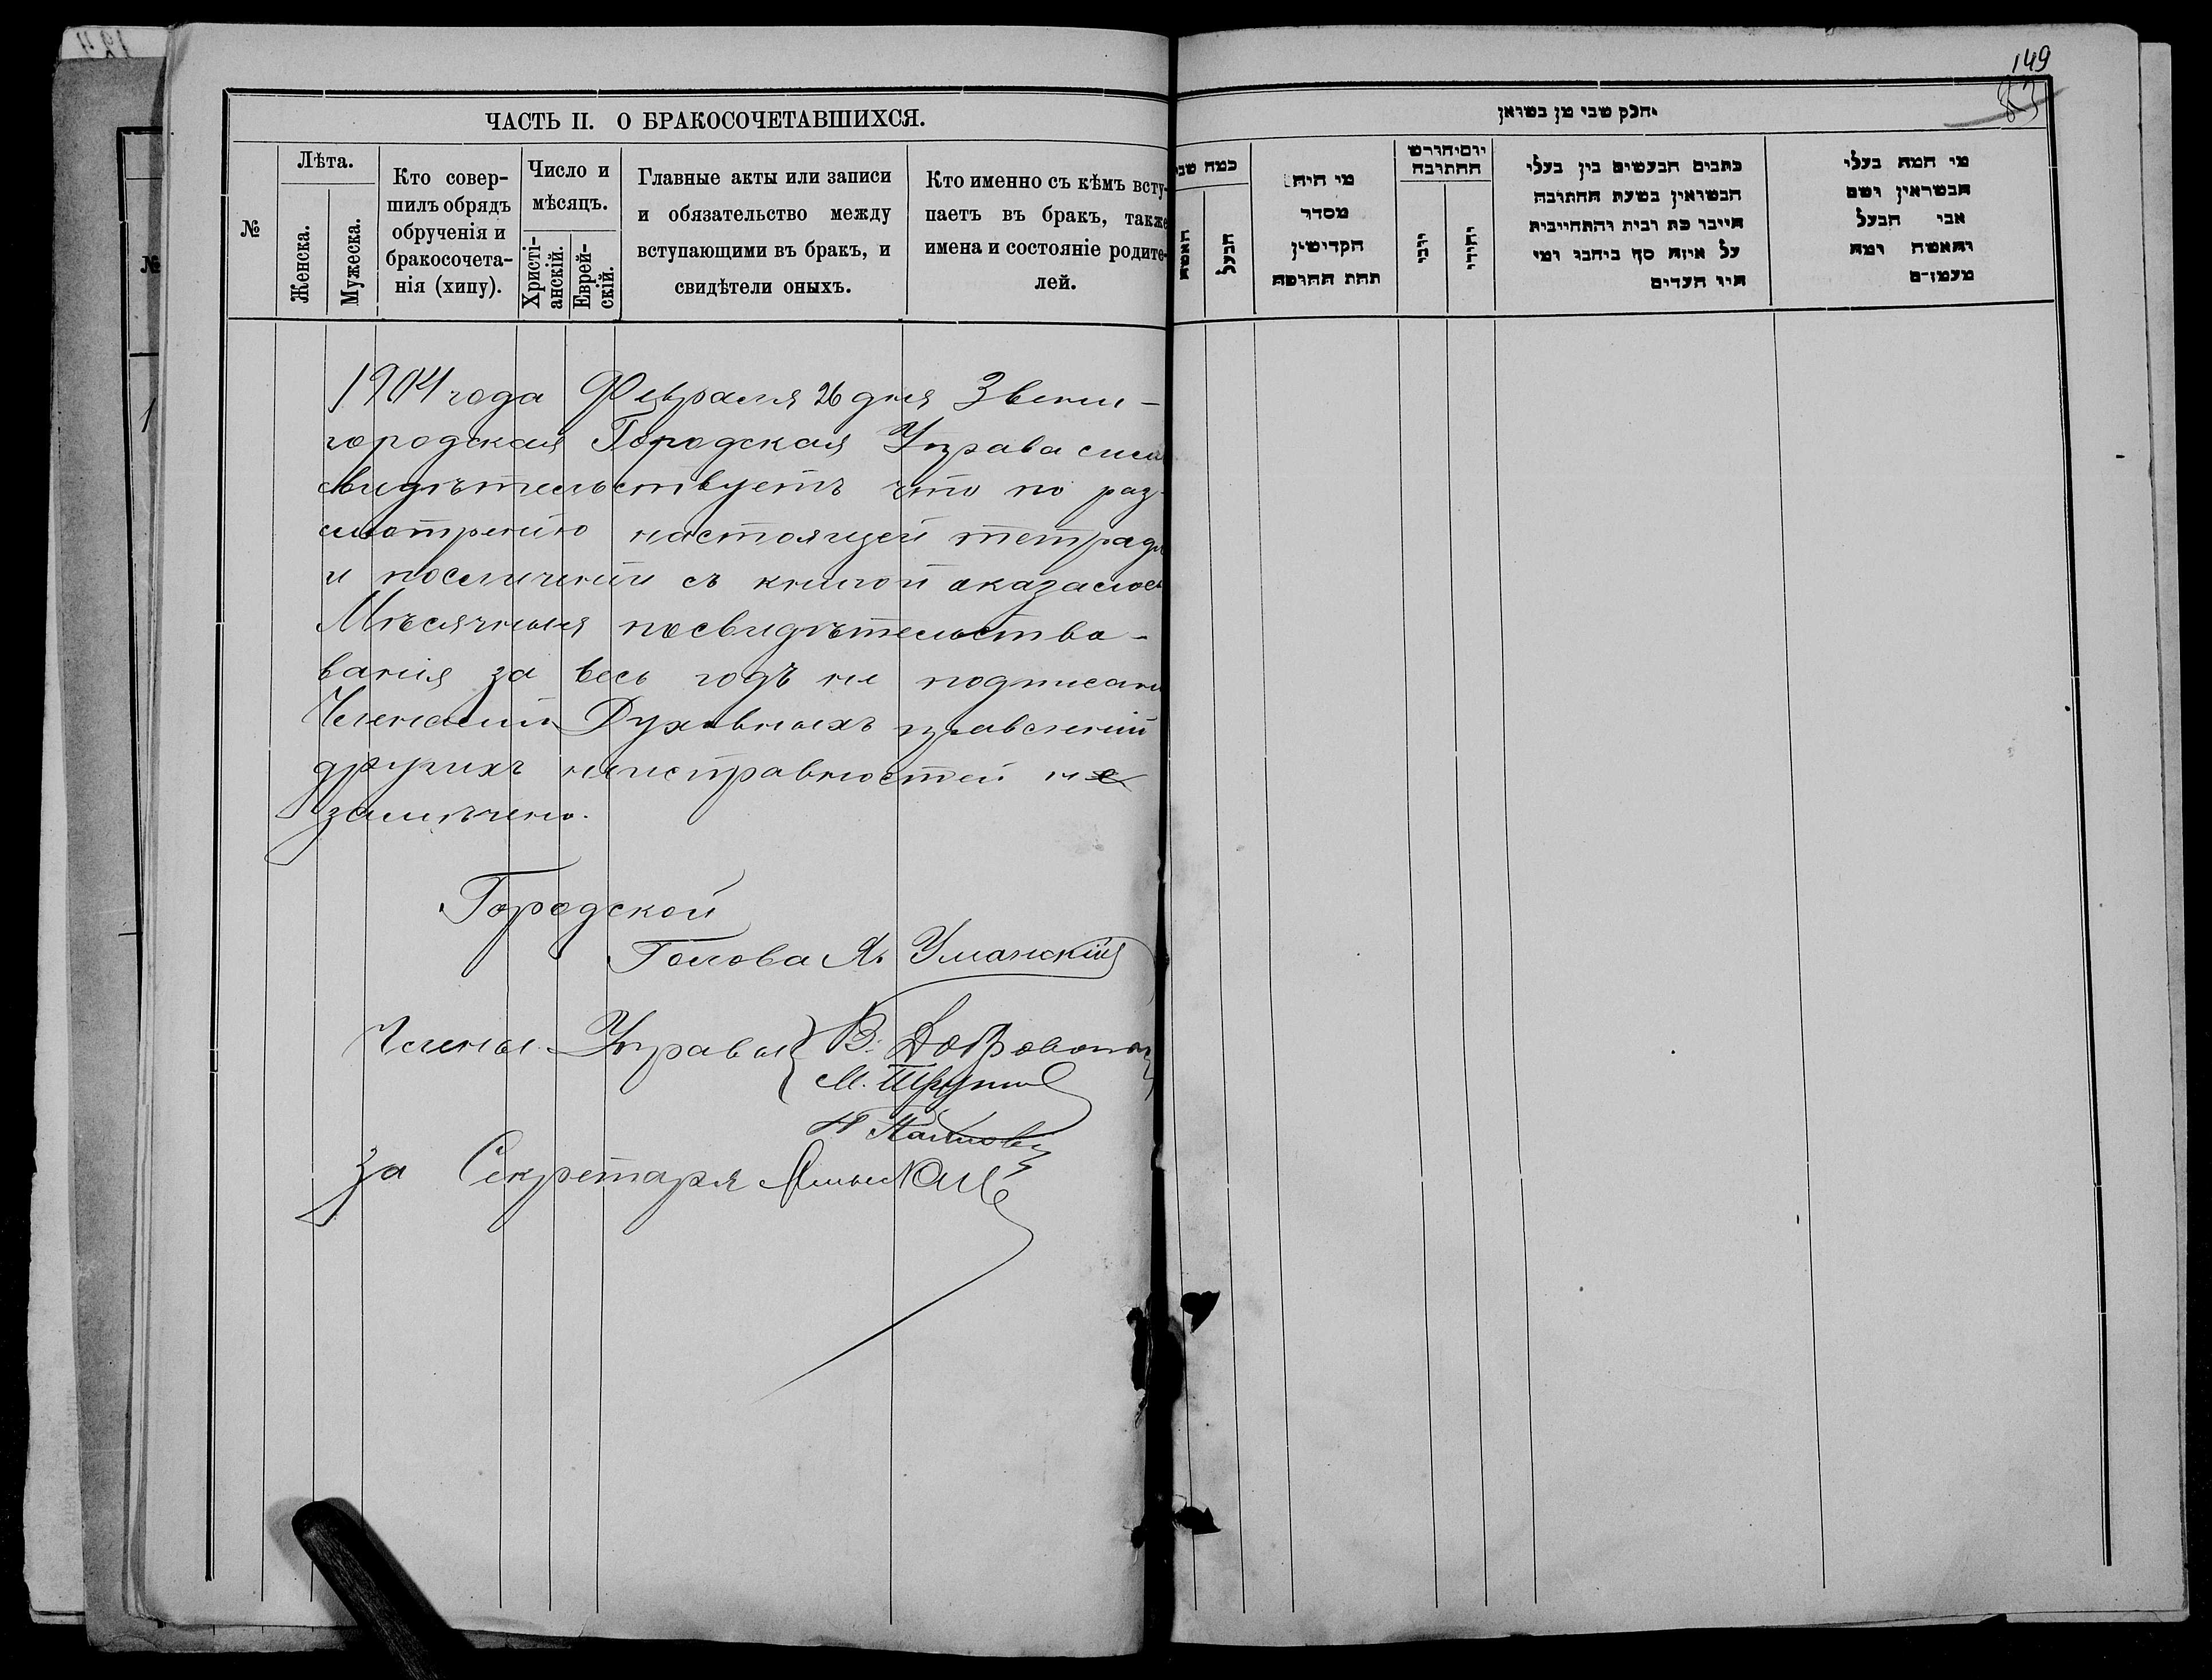 149
83
ЧАСТЬ II. О БРАКОСОЧЕТАВШИХСЯ.
№
Лѣта.
Женска.
Мужеска.
Кто совер-
шилъ обрядъ
обрученія и
бракосочета-
нія (хипу).
Число и
мѣсяцъ.
Христі-
анскій.
Еврей-
скій.
Главные акты или записи
и обязательство между
вступающими въ бракъ, и
свидѣтели оныхъ.
Кто именно съ кѣмъ всту-
паетъ въ бракъ, также
имена и состояніе родите-
лей.
1904 года Февраля 26 дня Звени-
городская Городская Управа симъ
свидѣтельствуетъ что по раз-
смотрѣнію настоящей тетради
и посличеніи съ книгой оказалось
Мѣсячныя посвидѣтельство-
ванія за весь годъ не подписаны
Членами Духовныхъ правленій
другихъ неисправностей не
замѣчено.
Городской
Голова Я. Уманскій
Члены Управы
В.
М.
Н
За Секретаря
חלק שני מן נשואין
כמה שני
האשה
הבעל
מי היה
מסדר
הקדישין
תחת החופה
יום וחורש
החתונה
יוני
יהודי
כתבים הנעשים בין בעלי
הנשואין בשעת החתונה
היינו כת ובית והתחייבות
על איזה סך ביחבו ומי
היו העדים
מי המה בעלי
הנשואין ושם
אבי הבעל
והאשה ומה
מעמדם